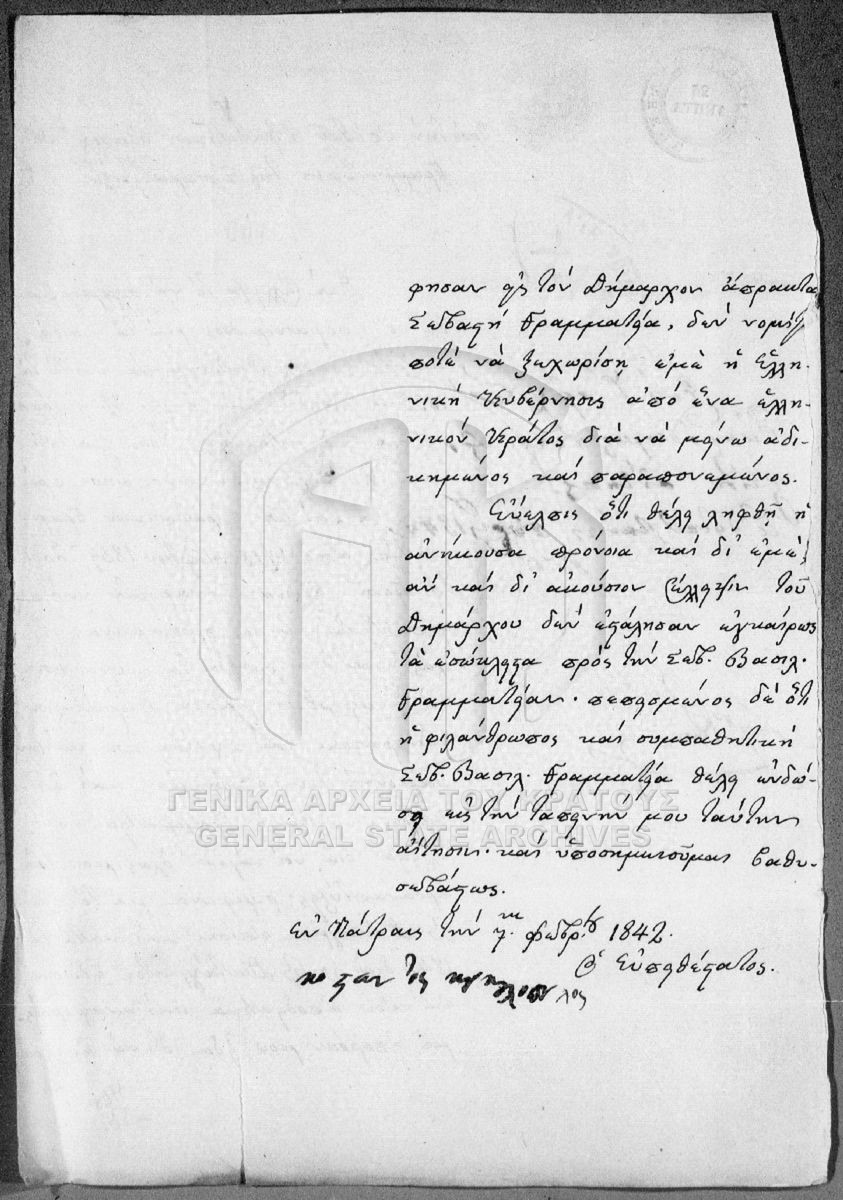 φησαν εἰς τὸν Δήμαρχον ἄπρακτα
Σεβαστή Γραμματεία, δὲν νομίζω
ποτὲ νὰ ξεχωρίσῃ ἐμὲ ἡ Ἑλλη-
νική Κυβέρνησις ἀπό ἕνα ἑλλη-
νικόν Κράτος διὰ νὰ μείνω ἀδι-
κημένος καὶ παραπονεμένος.
Εὔελπις ὅτι θέλει ληφθῇ ἡ
ἀνήκουσα πρόνοια καὶ δι' ἐμὲ,
ἂν καὶ δι' ἀκούσιον ἔλλειψιν τοῦ
Δημάρχου δὲν ἐστάλησαν ἐγκαίρως
τὰ ἐσώκλειστα πρὸς τὴν Σεβ. Βασιλ.
Γραμματείαν. πεπεισμένος δὲ ὅτι
ἡ φιλάνθρωπος καὶ συμπαθητική
Σεβ. Βασιλ. Γραμματεία θέλει ἐνδώ-
σει εἰς τὴν ταπεινήν μου ταύτην
αἴτησιν. καὶ ὑποσημειοῦμαι βαθυ-
σεβάστως.
Ἐν Πάτραις τὴν 7. Φεβρ. 1842.
Ὁ Εὐπειθέστατος.
ΓΕΝΙΚΑ ΑΡΧΕΙΑ ΤΟΥ ΚΡΑΤΟΥΣ
GENERAL STATE ARCHIVES